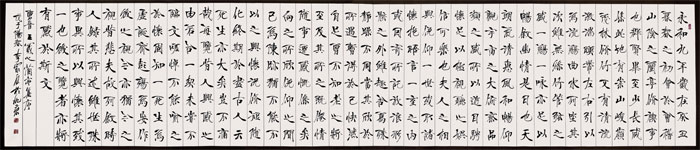 永和九年歲在癸丑
暮春之初會于會稽
山陰之蘭亭脩禊事
也群賢畢至少長咸
集此地有崇山峻嶺
茂林脩竹又有清流激
湍暎帶左右引以為
流觴曲水列坐其次
雖無絲竹管弦之
盛一觴一詠亦足以
暢敘幽情是日也天
朗氣清惠風和暢仰
觀宇宙之大俯察品
類之盛所以遊目騁
懷足以極視聽之娛
信可樂也夫人之相
與俯仰一世或取諸
懷抱悟言一室之內
或因寄所託放浪形
骸之外雖趣舍萬殊
靜躁不同當其欣
於所遇暫得於己快然
自足不知老之將
至及其所之既倦情
隨事遷感慨係之矣
向之所欣俛仰之間
已為陳跡猶不能不
以之興懷況脩短隨
化終期於盡古人云
死生亦大矣豈不痛
哉每攬昔人興感之
由若合一契未嘗不
臨文嗟悼不能喻之
於懷固知一死生為
虛誕齊彭殤為妄作
後之視今亦猶今之
視昔悲夫故列敘時
人錄其所述雖世殊
事異所以興懷其致
一也後之覽者亦將
有感於斯文
晉王羲之蘭亭集序